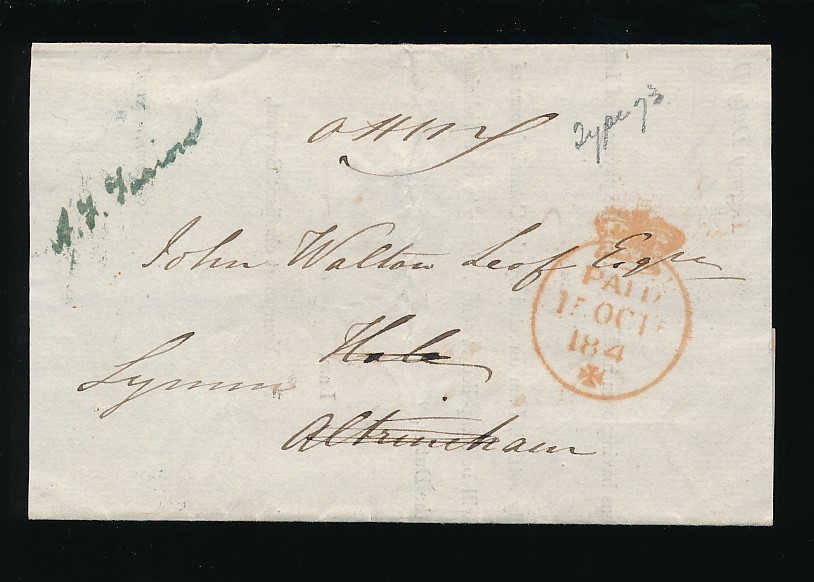 OHMS
Type 73
John Walton Leaf Esqre
PAID
15 OC 15
184
Hale
Lymm
Altrincham